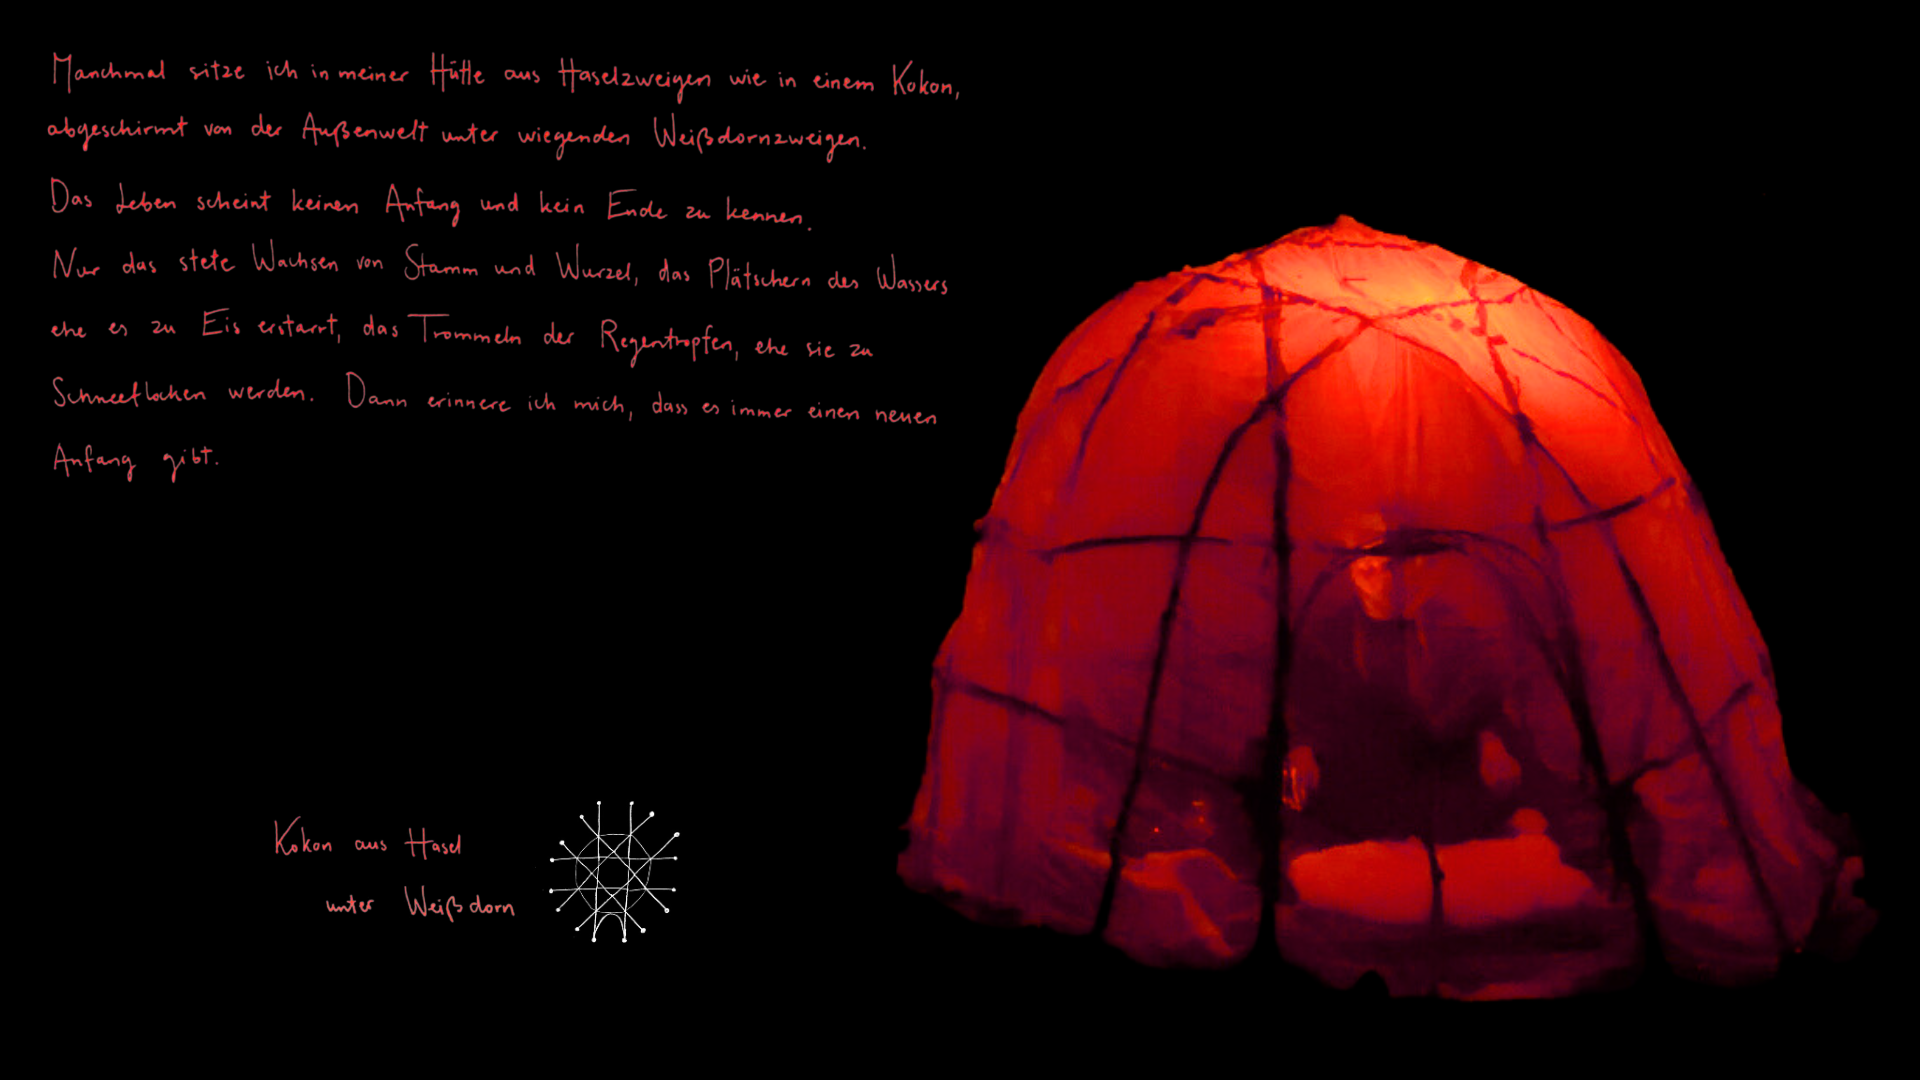 Manchmal sitze ich in meiner Hütte aus Haselzweigen wie in einem Kokon,
abgeschirmt von der Außenwelt unter wiegenden Weißdornzweigen.
Das Leben scheint keinen Anfang und kein Ende zu kennen.
Nur das stete Wachsen von Stamm und Wurzel, das Plätschern des Wassers
ehe es zu Eis erstarrt, das Trommeln der Regentropfen, ehe sie zu
Schneeflocken werden. Dann erinnere ich mich, dass es immer einen neuen
Anfang gibt.
Kokon aus Hasel
unter Weißdorn